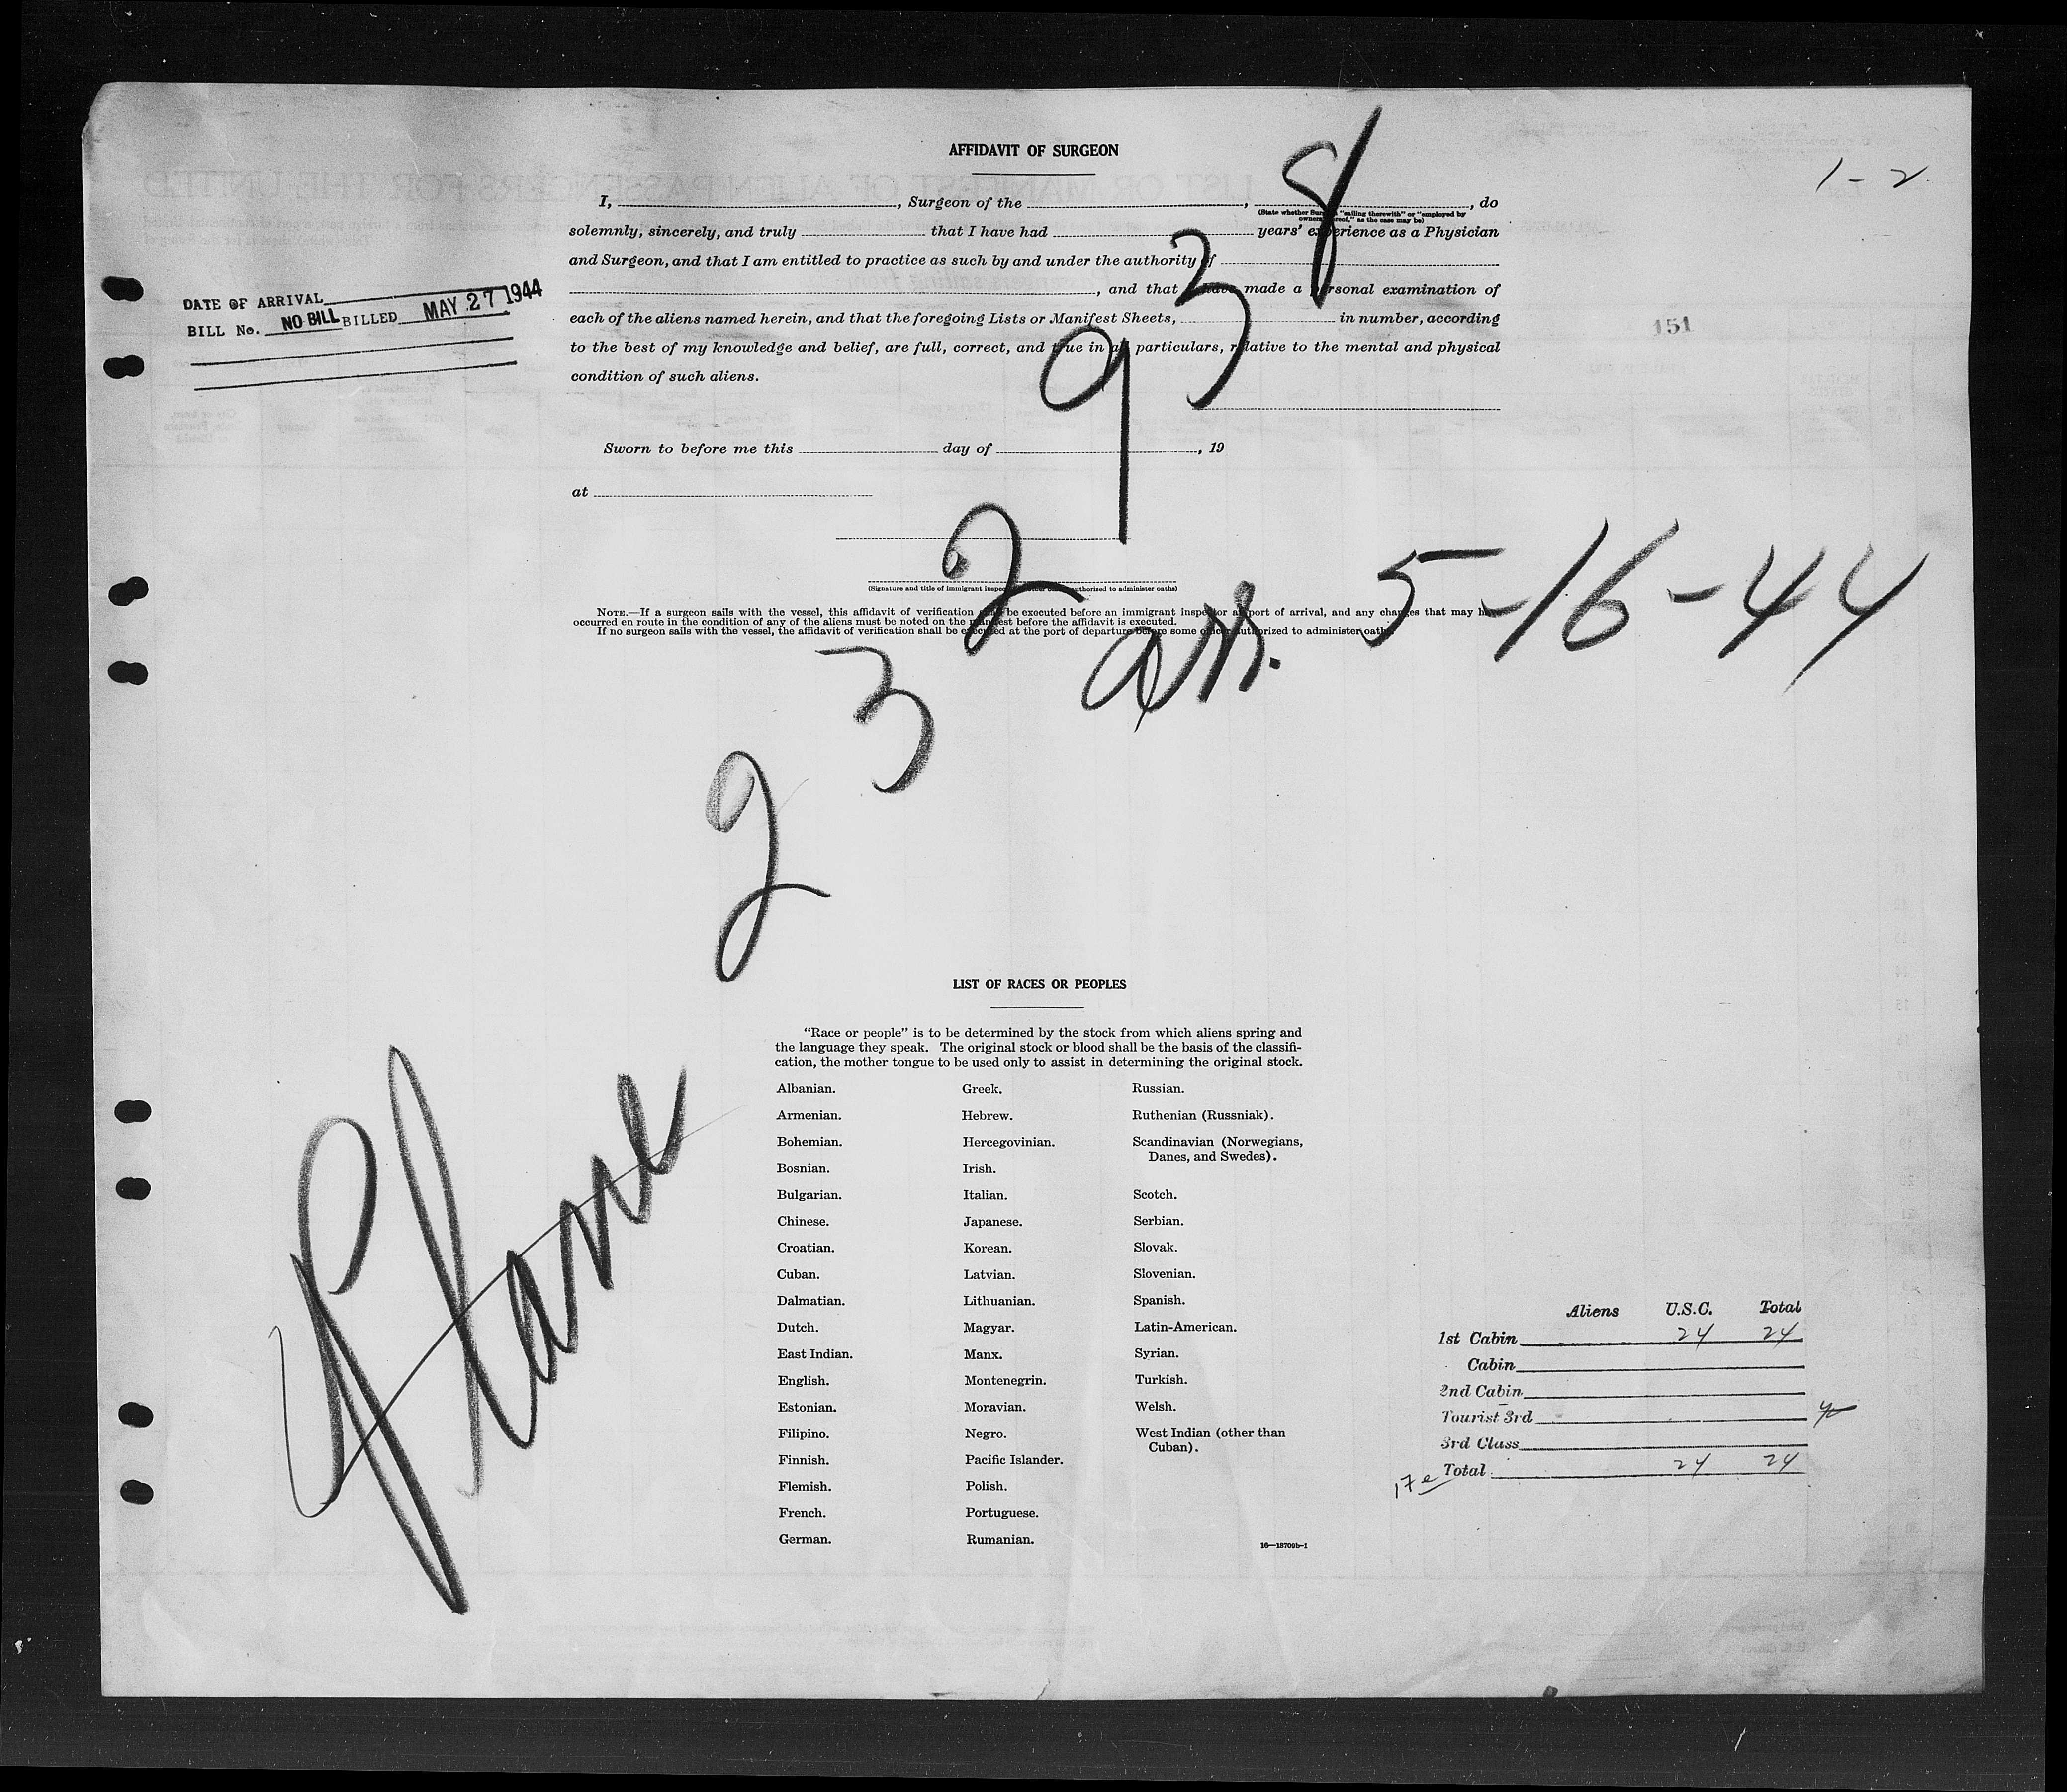 AFFIDAVIT OF SURGEON
1-2
I, , Surgeon of the , , do
(State whether Surgeon "sailing therewith" or "employed by
owners thereof," as the case may be)
solemnly, sincerely, and truly that I have had years' experience as a Physician
and Surgeon, and that I am entitled to practice as such by and under the authority of
, and that I have made a personal examination of
each of the aliens named herein, and that the foregoing Lists or Manifest Sheets, in number, according
to the best of my knowledge and belief, are full, correct, and true in all particulars, relative to the mental and physical
condition of such aliens.
DATE OF ARRIVAL
BILL No. NO BILL BILLED MAY 27 1944
151
Sworn to before me this day of , 19
at
(Signature and title of immigrant inspector or other officer authorized to administer oaths)
NOTE.—If a surgeon sails with the vessel, this affidavit of verification must be executed before an immigrant inspector at port of arrival, and any changes that may have
occurred en route in the condition of any of the aliens must be noted on the manifest before the affidavit is executed.
If no surgeon sails with the vessel, the affidavit of verification shall be executed at the port of departure before some officer authorized to administer oaths.
Plane 232938
arr. 5-16-44
LIST OF RACES OR PEOPLES
"Race or people" is to be determined by the stock from which aliens spring and
the language they speak. The original stock or blood shall be the basis of the classifi-
cation, the mother tongue to be used only to assist in determining the original stock.
Albanian.
Armenian.
Bohemian.
Bosnian.
Bulgarian.
Chinese.
Croatian.
Cuban.
Dalmatian.
Dutch.
East Indian.
English.
Estonian.
Filipino.
Finnish.
Flemish.
French.
German.
Greek.
Hebrew.
Hercegovinian.
Irish.
Italian.
Japanese.
Korean.
Latvian.
Lithuanian.
Magyar.
Manx.
Montenegrin.
Moravian.
Negro.
Pacific Islander.
Polish.
Portuguese.
Rumanian.
Russian.
Ruthenian (Russniak).
Scandinavian (Norwegians,
Danes, and Swedes).
Scotch.
Serbian.
Slovak.
Slovenian.
Spanish.
Latin-American.
Syrian.
Turkish.
Welsh.
West Indian (other than
Cuban).
16—18700b-1
Aliens U.S.C. Total
1st Cabin 24 24
Cabin
2nd Cabin
Tourist 3rd
3rd Class
Total 24 24